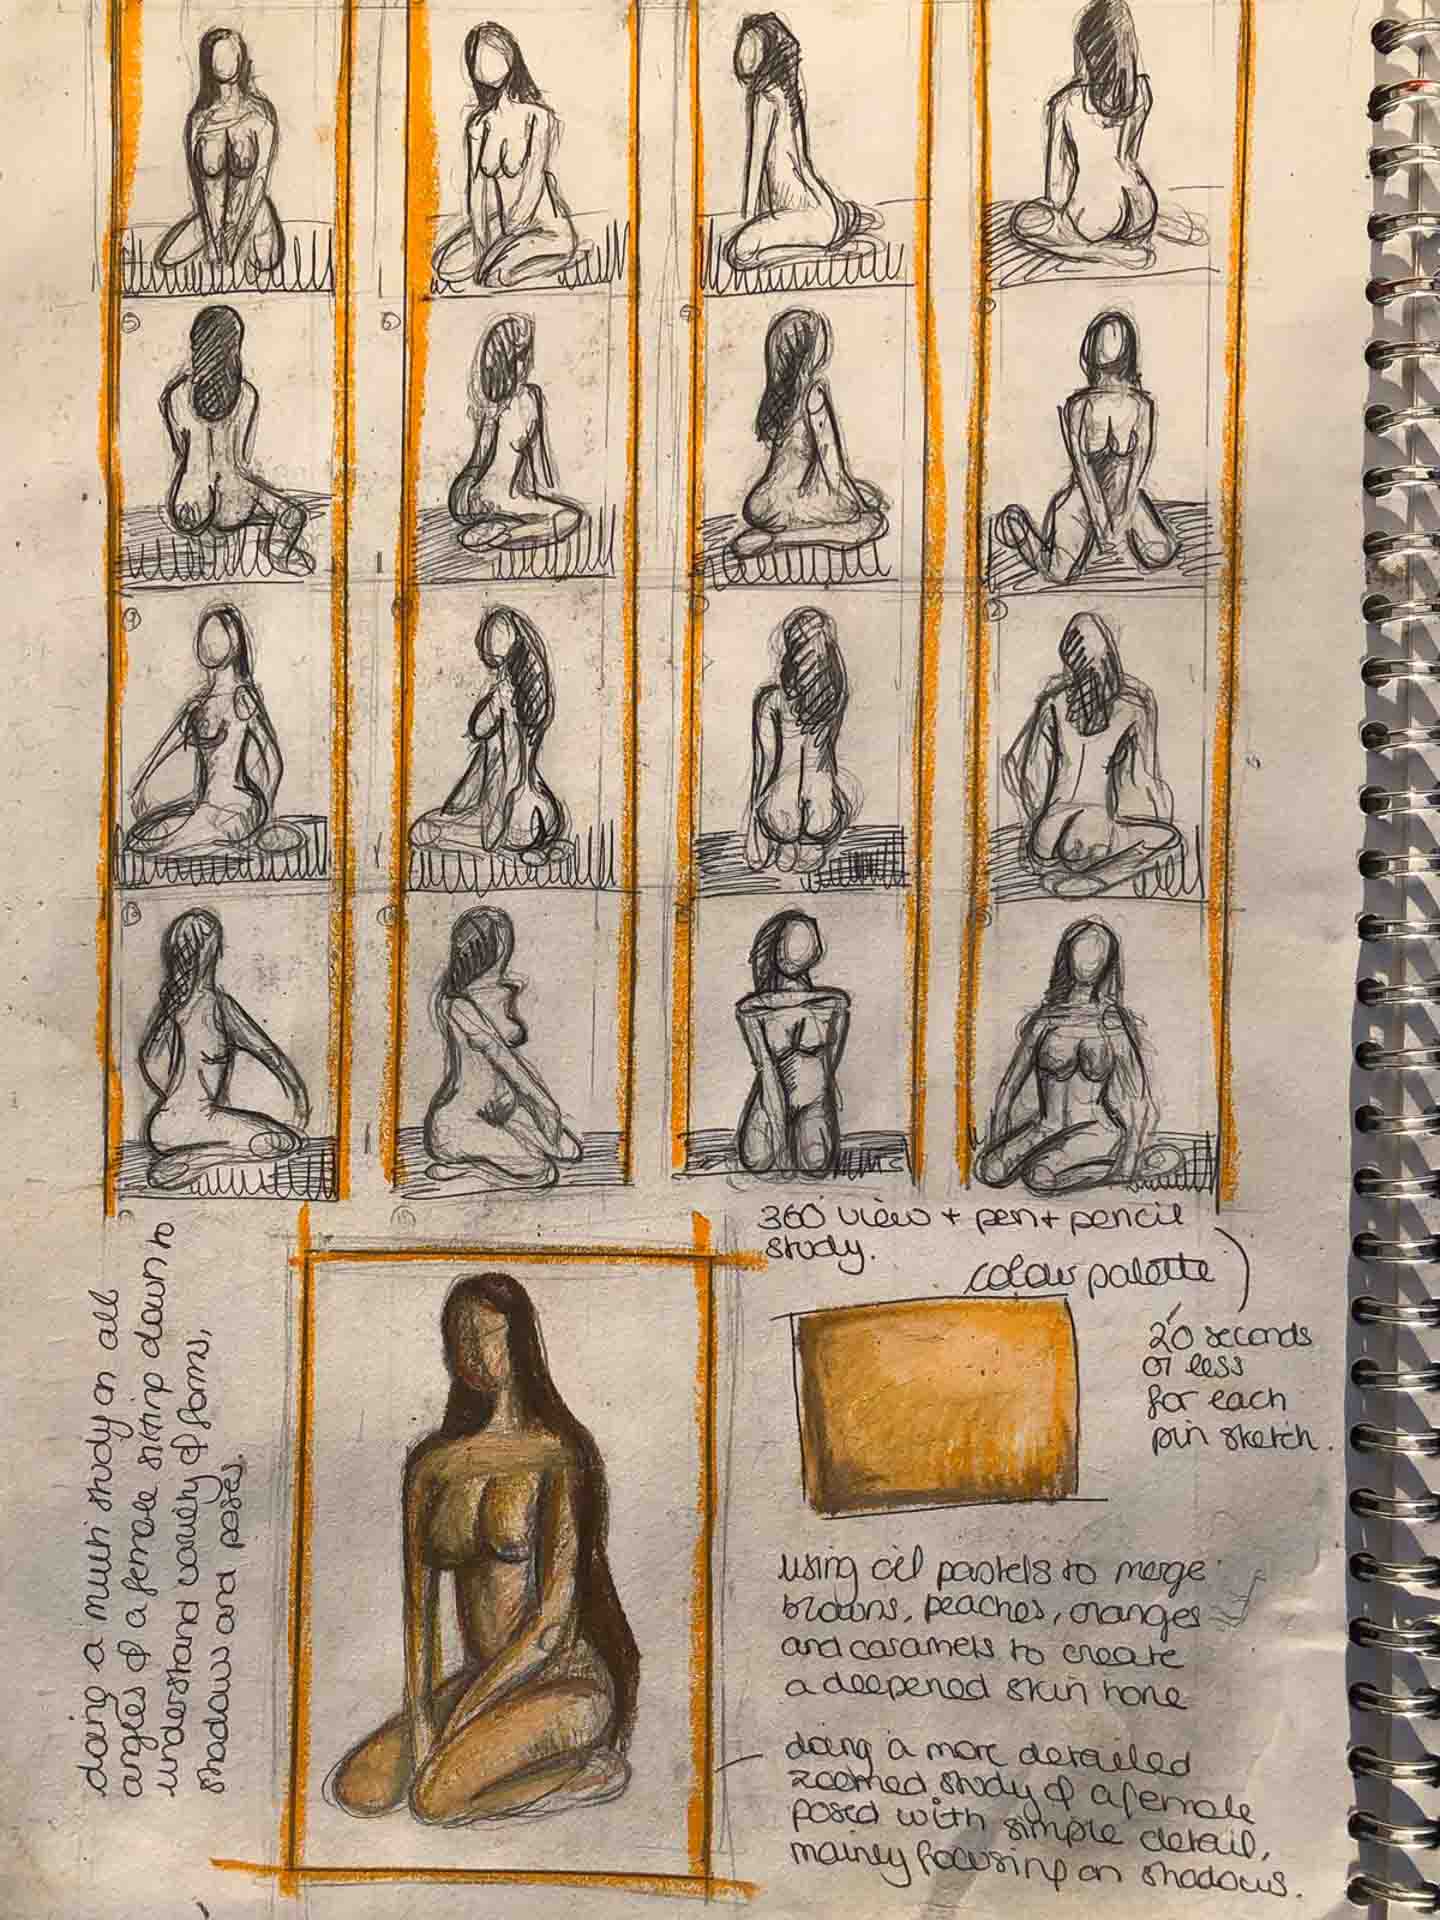 5
6
7
9
12
13
360 view + pen + pencil
study.
colour palette
20 seconds
or less
for each
pin sketch.
doing a multi study on all
angles of a female sitting down to
understand variety of forms,
shadows and poses.
using oil pastels to merge
browns, peaches, oranges
and caramels to create
a deepened skin tone
doing a more detailed
zoomed study of a female
posed with simple detail,
mainly focusing on shadows.